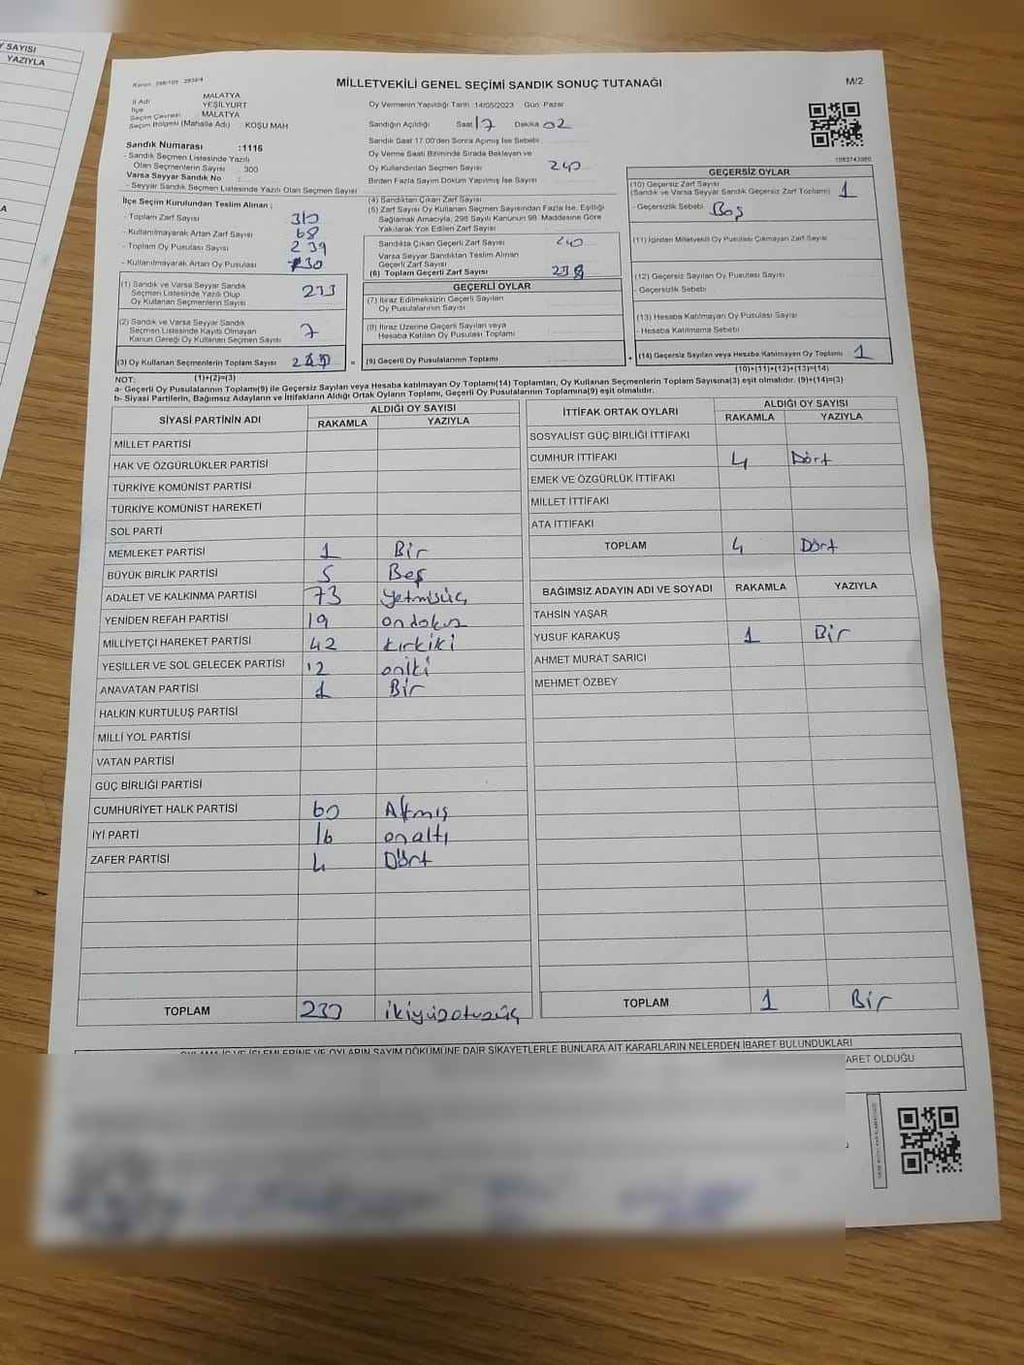 Y SAYISI
YAZIYLA
A
MİLLETVEKİLİ GENEL SEÇİMİ SANDIK SONUÇ TUTANAĞI
M/2
İl Adı MALATYA
İlçe YEŞİLYURT
Seçim Çevresi MALATYA
Seçim Bölgesi (Mahalle Adı) : KOŞU MAH
Sandık Numarası :1116
- Sandık Seçmen Listesinde Yazılı
Olan Seçmenlerin Sayısı : 300
Varsa Seyyar Sandık No :
- Seyyar Sandık Seçmen Listesinde Yazılı Olan Seçmen Sayısı
İlçe Seçim Kurulundan Teslim Alınan ;
- Toplam Zarf Sayısı 310
- Kullanılmayarak Artan Zarf Sayısı 68
- Toplam Oy Pusulası Sayısı 239
- Kullanılmayarak Artan Oy Pusulası
(1) Sandık ve Varsa Seyyar Sandık
Seçmen Listesinde Yazılı Olup
Oy Kullanan Seçmenlerin Sayısı 233
(2) Sandık ve Varsa Seyyar Sandık
Seçmen Listesinde Kayıtlı Olmayan
Kanun Gereği Oy Kullanan Seçmen Sayısı 7
(3) Oy Kullanan Seçmenlerin Toplam Sayısı
Oy Vermenin Yapıldığı Tarih :14/05/2023 Gün :Pazar
Sandığın Açıldığı Saat 17 Dakika 02
Sandık Saat 17.00'den Sonra Açılmış İse Sebebi
Oy Verme Saati Bitiminde Sırada Bekleyen ve
Oy Kullandırılan Seçmen Sayısı 240
Birden Fazla Sayım Döküm Yapılmış İse Sayısı
(4) Sandıktan Çıkan Zarf Sayısı
(5) Zarf Sayısı Oy Kullanan Seçmen Sayısından Fazla İse, Eşitliği
Sağlamak Amacıyla, 298 Sayılı Kanunun 98. Maddesine Göre
Yakılarak Yok Edilen Zarf Sayısı
Sandıkta Çıkan Geçerli Zarf Sayısı 240
Varsa Seyyar Sandıktan Teslim Alınan
Geçerli Zarf Sayısı
(6) Toplam Geçerli Zarf Sayısı
GEÇERLİ OYLAR
(7) İtiraz Edilmeksizin Geçerli Sayılan
Oy Pusulalarının Sayısı
(8) İtiraz Üzerine Geçerli Sayılan veya
Hesaba Katılan Oy Pusulası Toplamı
= (9) Geçerli Oy Pusulalarının Toplamı
GEÇERSİZ OYLAR
(10) Geçersiz Zarf Sayısı
(Sandık ve Varsa Seyyar Sandık Geçersiz Zarf Toplamı) 1
- Geçersizlik Sebebi : Boş
(11) İçinden Milletvekili Oy Pusulası Çıkmayan Zarf Sayısı
(12) Geçersiz Sayılan Oy Pusulası Sayısı
- Geçersizlik Sebebi
(13) Hesaba Katılmayan Oy Pusulası Sayısı
- Hesaba Katılmama Sebebi
+ (14) Geçersiz Sayılan veya Hesaba Katılmayan Oy Toplamı 1
(10)+(11)+(12)+(13)=(14)
NOT: (1)+(2)=(3)
a- Geçerli Oy Pusulalarının Toplamı(9) ile Geçersiz Sayılan veya Hesaba Katılmayan Oy Toplamı(14) Toplamları, Oy Kullanan Seçmenlerin Toplam Sayısına(3) eşit olmalıdır. (9)+(14)=(3)
b- Siyasi Partilerin, Bağımsız Adayların ve İttifakların Aldığı Ortak Oyların Toplamı, Geçerli Oy Pusulalarının Toplamına(9) eşit olmalıdır.
SİYASİ PARTİNİN ADI ALDIĞI OY SAYISI
RAKAMLA YAZIYLA
MİLLET PARTİSİ
HAK VE ÖZGÜRLÜKLER PARTİSİ
TÜRKİYE KOMÜNİST PARTİSİ
TÜRKİYE KOMÜNİST HAREKETİ
SOL PARTİ
MEMLEKET PARTİSİ 1 Bir
BÜYÜK BİRLİK PARTİSİ 5 Beş
ADALET VE KALKINMA PARTİSİ 73 yetmisüç
YENİDEN REFAH PARTİSİ 19 ondokuz
MİLLİYETÇİ HAREKET PARTİSİ 42 kırkiki
YEŞİLLER VE SOL GELECEK PARTİSİ 12 oniki
ANAVATAN PARTİSİ 1 Bir
HALKIN KURTULUŞ PARTİSİ
MİLLİ YOL PARTİSİ
VATAN PARTİSİ
GÜÇ BİRLİĞİ PARTİSİ
CUMHURİYET HALK PARTİSİ 60 Altmış
İYİ PARTİ 16 onaltı
ZAFER PARTİSİ 4 Dört
TOPLAM 233 ikiyüzotuzüç
İTTİFAK ORTAK OYLARI ALDIĞI OY SAYISI
RAKAMLA YAZIYLA
SOSYALİST GÜÇ BİRLİĞİ İTTİFAKI
CUMHUR İTTİFAKI 4 Dört
EMEK VE ÖZGÜRLÜK İTTİFAKI
MİLLET İTTİFAKI
ATA İTTİFAKI
TOPLAM 4 Dört
BAĞIMSIZ ADAYIN ADI VE SOYADI RAKAMLA YAZIYLA
TAHSİN YAŞAR
YUSUF KARAKUŞ 1 Bir
AHMET MURAT SARICI
MEHMET ÖZBEY
TOPLAM 1 Bir
OYLAMA İŞ VE İŞLEMLERİNE VE OYLARIN SAYIM DÖKÜMÜNE DAİR ŞİKAYETLERLE BUNLARA AİT KARARLARIN NELERDEN İBARET BULUNDUKLARI
ARET OLDUĞU